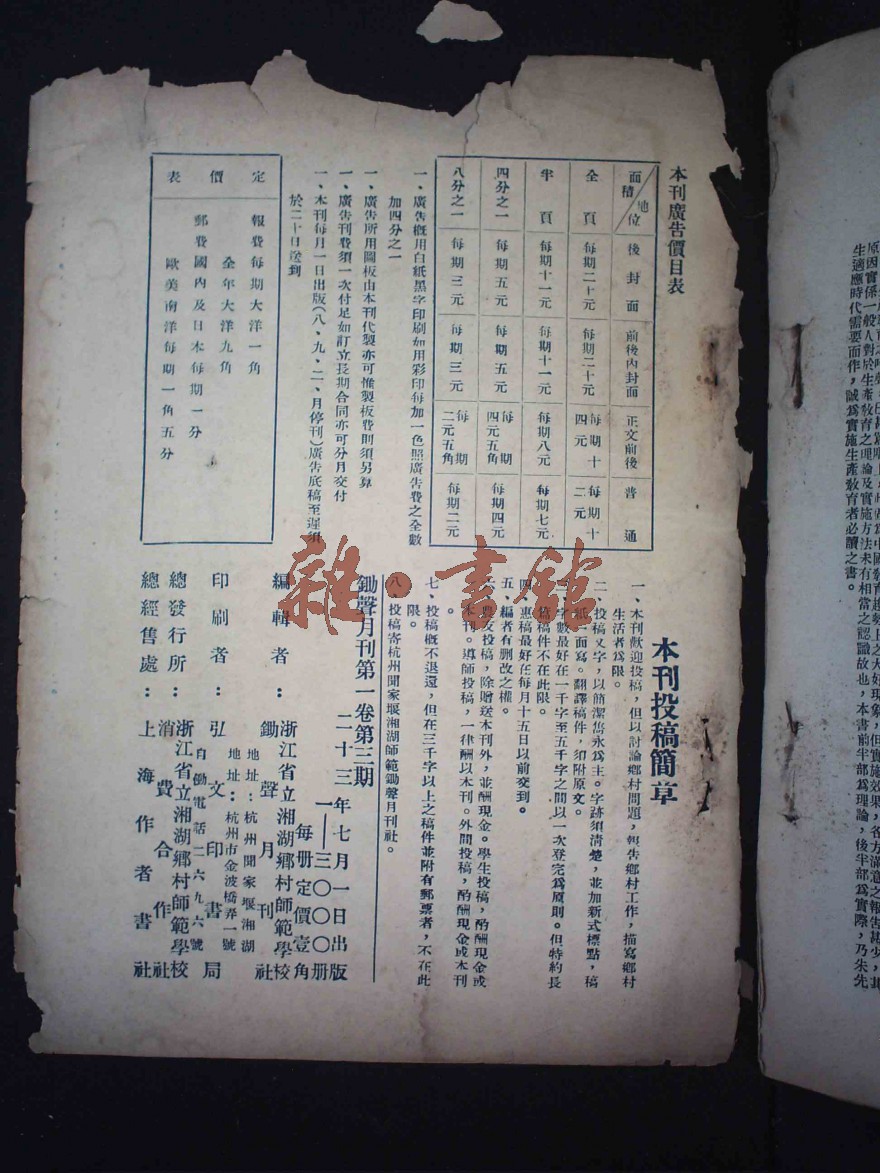 本刊廣告價目表
面積／地位 後封面 前後內封面 正文前後 普通
全頁 每期二十元 每期二十元 每期十四元 每期十二元
半頁 每期十一元 每期十一元 每期八元 每期七元
四分之一 每期五元 每期五元 每期四元五角 每期四元
八分之一 每期三元 每期三元 每期二元五角 每期二元
一、廣告概用白紙黑字印刷如用彩印每加一色照廣告費之全數
加四分之一
一、廣告所用圖板由本刊代製亦可惟製板費則須另算
一、廣告刊費須一次付足如訂立長期合同亦可分月交付
一、本刊每月一日出版(八、九、二、月停刊)廣告底稿至遲須
於二十日送到
定價表
報費每期大洋一角
全年大洋九角
郵費國內及日本每期一分
歐美南洋每期一角五分
本刊投稿簡章
一、本刊歡迎投稿，但以討論鄉村問題，報告鄉村工作，描寫鄉村
生活者爲限。
二、投稿文字，以簡潔雋永爲主。字跡須清楚，並加新式標點，稿
紙一面寫。翻譯稿件，須附原文。
三、字數最好在一千字至五千字之間以一次登完爲原則。但特約長
篇稿件不在此限。
四、惠稿最好在每月十五日以前交到。
五、編者有刪改之權。
六、農友投稿，除贈送本刊外，並酬現金。學生投稿，酌酬現金或
本刊。導師投稿，一律酬以本刊。外間投稿，酌酬現金或本刊
。
七、投稿概不退還，但在三千字以上之稿件並附有郵票者，不在此
限。
八、投稿寄杭州聞家堰湘湖師範鋤聲月刊社。
鋤聲月刊第一卷第三期
二十三年七月一日出版
一—三〇〇〇册
每册定價壹角
編輯者：浙江省立湘湖鄉村師範學校
鋤聲月刊社
地址：杭州聞家堰湘湖
印刷者：弘文印書局
地址：杭州市金波橋弄一號
自動電話二六九六號
總發行所：浙江省立湘湖鄉村師範學校
消費合作社
總經售處：上海作者書社
雜·書館
生適應時代需要而作，誠爲實施生產教育者必讀之書。
原因實係一般人對於生產教育之理論及實施方法未有相當之認識故也，本書前半部爲理論，後半部爲實際，乃朱先